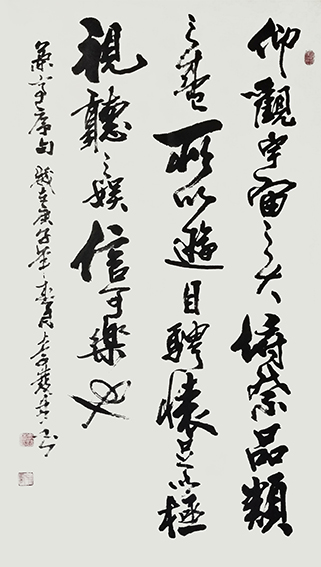 仰觀宇宙之大俯察品類
之盛所以遊目騁懷足以極
視聽之娛信可樂也
蘭亭序句歲在庚子年春月書